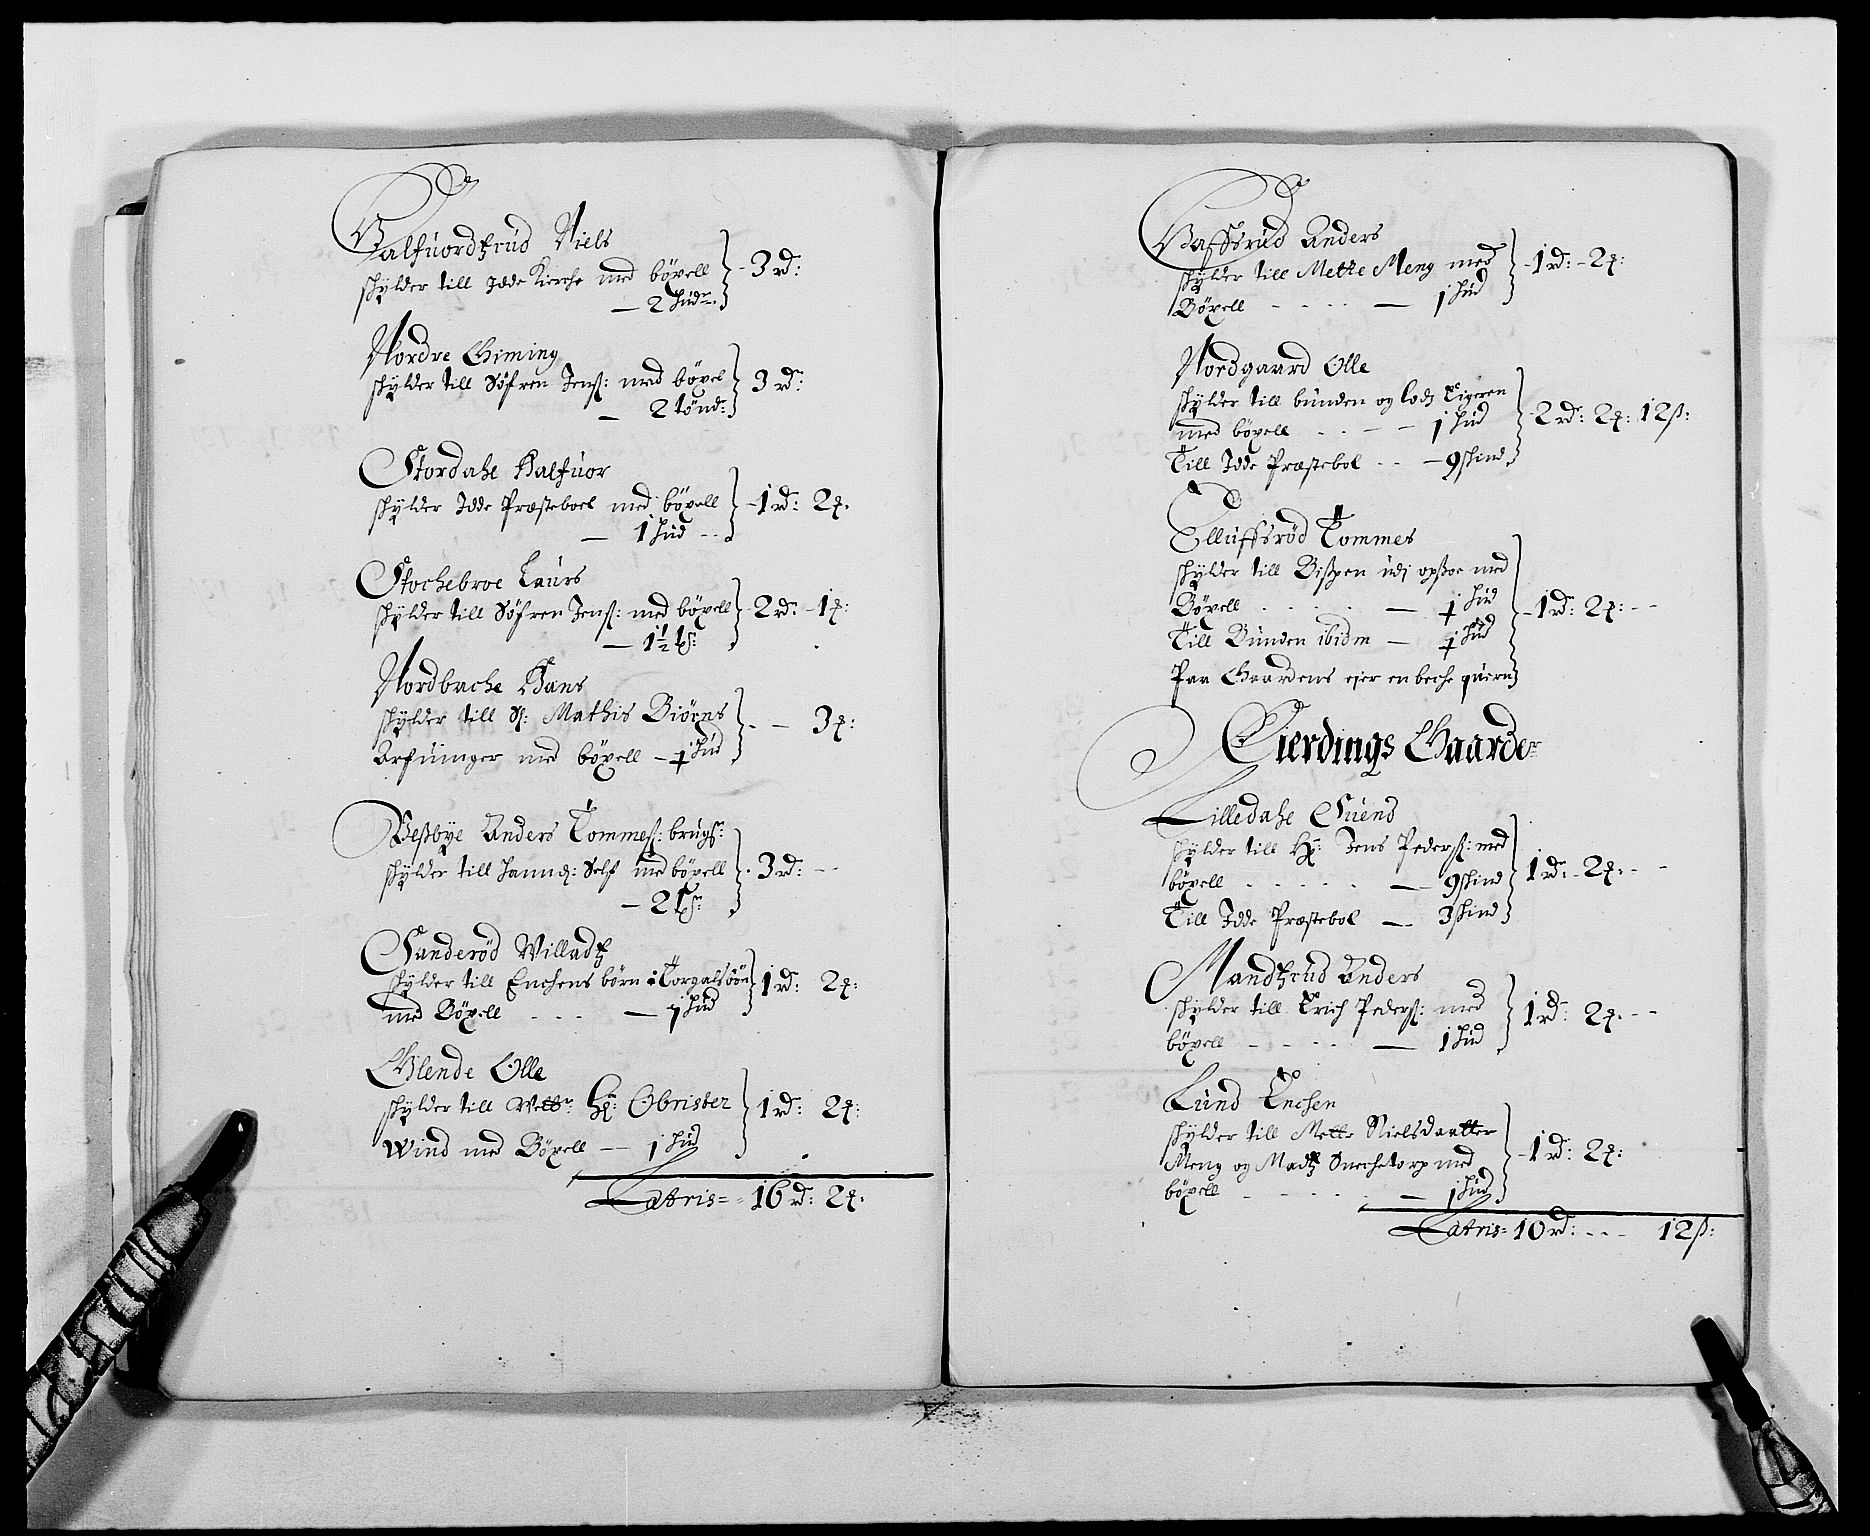 Halfuordtzrud Niels
schylder till Jdde Kierche med böxell
— 2 hudr. 3 rd:
Nordre Giming
schylder till Söfren Jens: med böxel
— 2 tönd: 3 rd:
Stordahl Halfuor
schylder Jdde Præsteboel med böxell
— 1 hud -- 1 rd: 2 ß.
Stochebroe Laurs
schylder till Söfren Jens: med böxell
— 1½ 2 rd: - 1
Nordbache Hans
schylder till S: Mathis Biörns
Arfuinger med böxell — ½ hud - — 3
Weßbye Anders Tommes: brugr:
schylder till Jannich: Self med böxell
— 2 3 rd: --
Sanderöd Willadtz
schylder till Enchens börn i Torgalsöön
med Böxell - - - — 1 hud 1 rd: 2
Glende Olle
schylder till Welb: Hr: Obrister
Wind med Böxell — 1 hud 1 rd: 2
Latris = 16 rd: 2
Haffsrud Anders
schylder till Mette Meng med
Böxell - - - - — 1 hud 1 rd: - 2
Nordgaard Olle
schylder till bunden og lodz Eigeren
med böxell - - - - 1 hud
Till Jdde Præstebol - - — 9 skind 2 rd: 2 12 ß:
Elluffsröd Tommes
schylder till Bispen udj opsloe med
Böxell - - - - — ½ hud
Till Bunden ibidm — ½ hud 1 rd: 2 --
Paa Gaardens ejer en beche quern
Fierdings Gaarder
Lilledahl Suend
schylder till Hr: Jens Peders: med
böxell - - - - - — 9 skind
Till Jdde Præstebol — 3 skind 1 rd: - 2 --
Mandtzrud Anders
schylder till Erich Peders: med
böxell - - - - — 1 hud 1 rd: 2 --
Lund Enchen
schylder till Mette Nielsdaatter
Meng og Madtz Snechetorp med
böxell - - - - — 1 hud 1 rd: 2
Latris = 10 rd: - - - 12 ß: